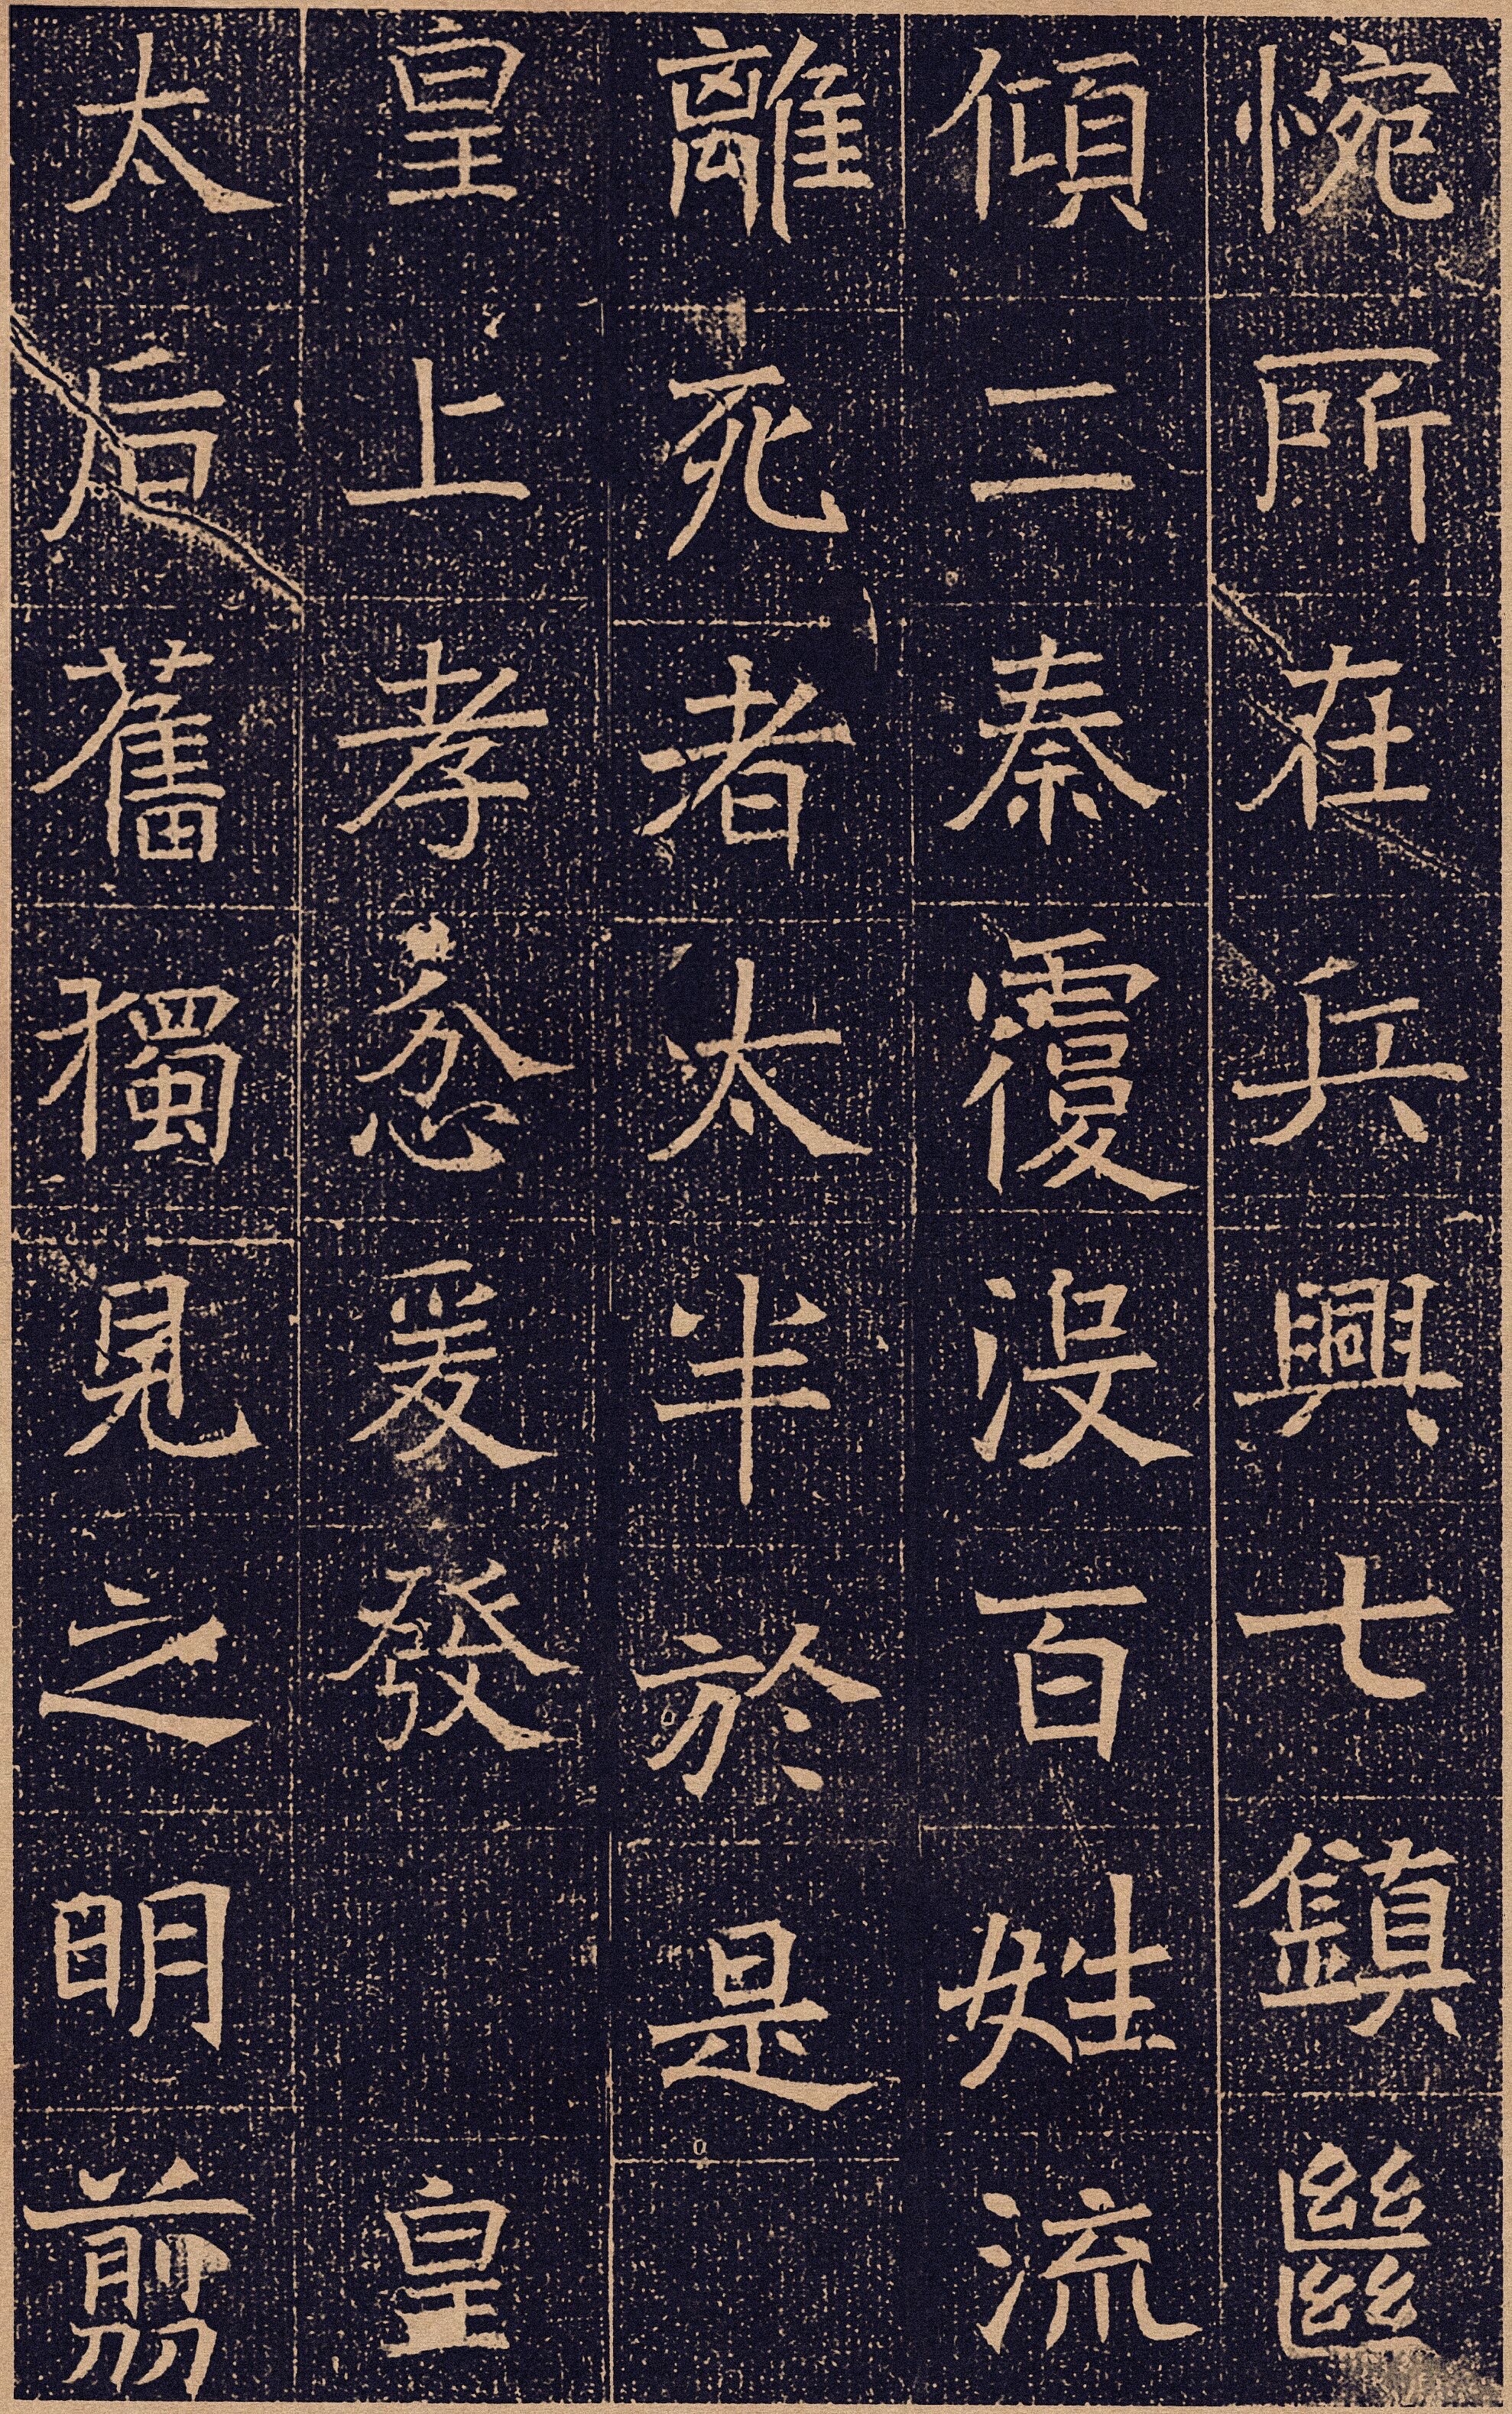 惋所在兵興七鎮㡭
傾二秦覆沒百姓流
離死者太半於是
皇上孝忿爰發 皇
太后奮獨見之明翦